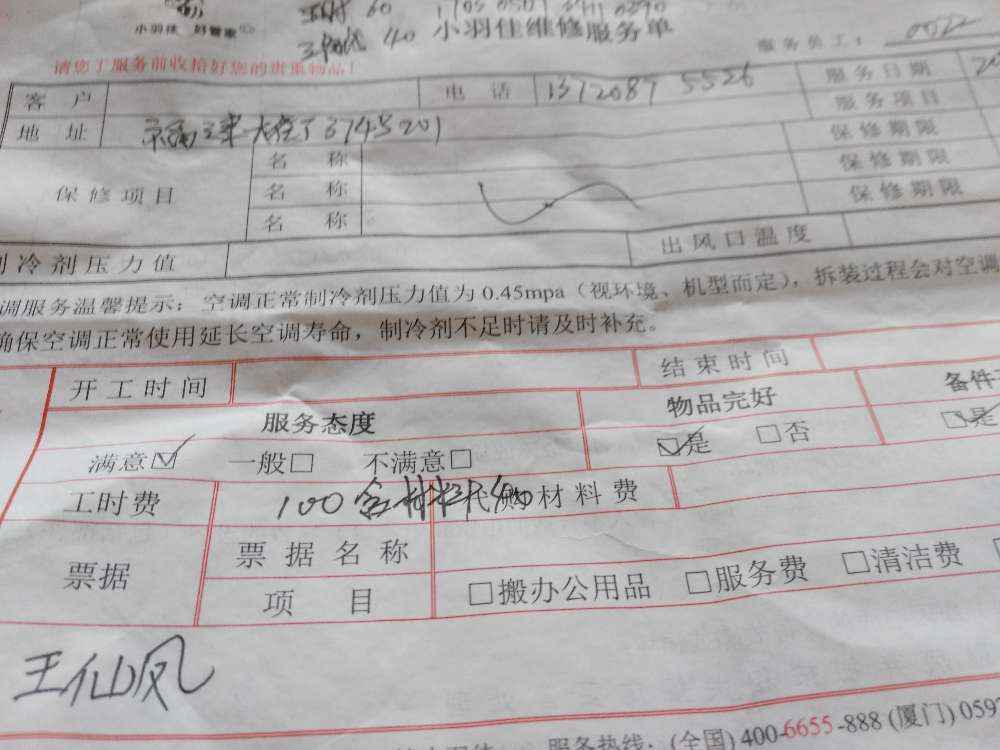 60
小羽佳 好管家
40 小羽佳维修服务单
服务员工: 0022
请您于服务前收拾好您的贵重物品!
客 户 电 话 1372087 5526 服务日期 20
服务项目
地 址 3745 201 保修期限
保修项目 名 称 保修期限
名 称 保修期限
名 称
制冷剂压力值 出风口温度
调服务温馨提示: 空调正常制冷剂压力值为 0.45mpa (视环境、机型而定), 拆装过程会对空调
确保空调正常使用延长空调寿命, 制冷剂不足时请及时补充。
开工时间 结束时间
服务态度 物品完好 备件
满意☑ 一般□ 不满意□ ☑是 □否 ☑是
工时费 100含材料 代购材料费
票据 票据名称
项 目 □搬办公用品 □服务费 □清洁费
王仙凤
服务热线: (全国) 400-6655-888 (厦门) 0592